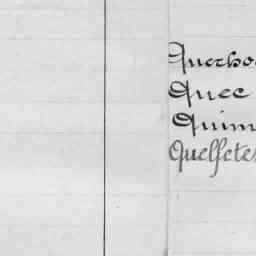 Querbo
Quee
Quim
Quelfetes